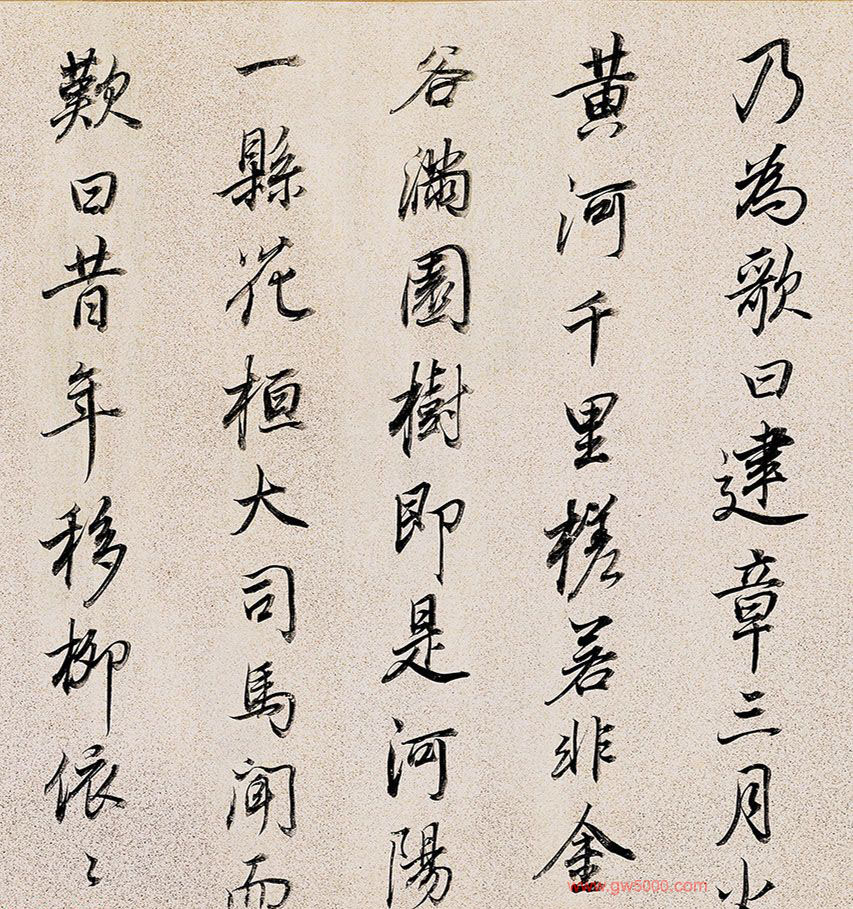 乃為歌曰建章三月火
黄河千里槎若非金
谷滿園樹即是河陽
一縣花桓大司馬聞而
歎曰昔年移柳依〻
www.gw5000.com